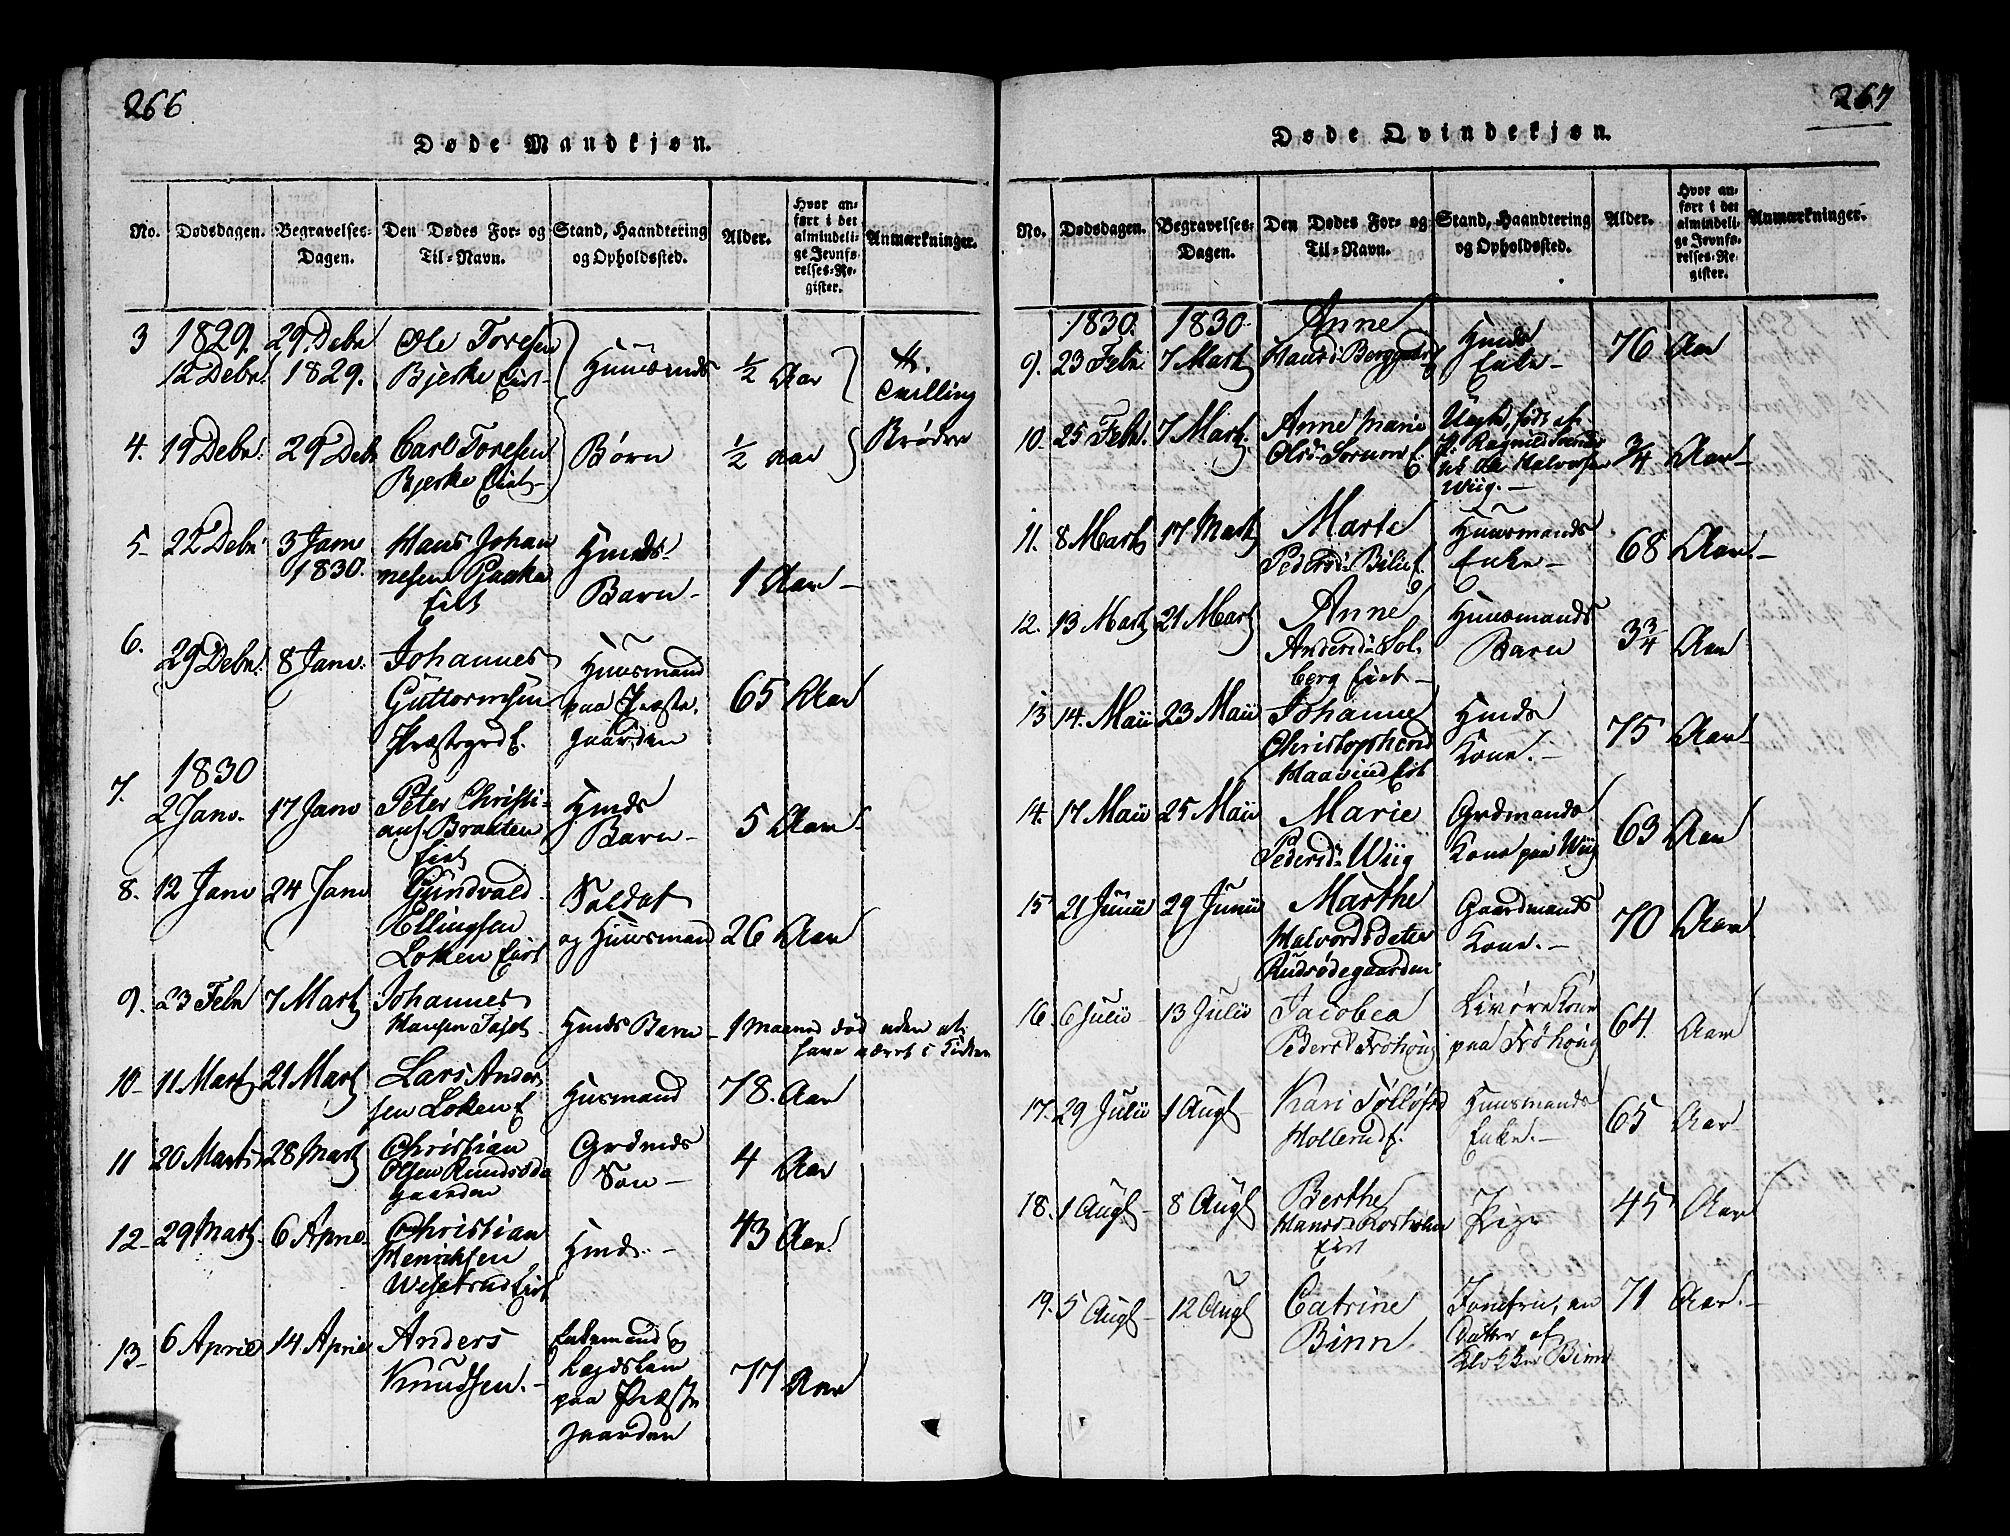 266
Døde Mandkjøn.
No. Dødsdagen. Begravelses-Dagen. Den Dødes For- og Til-Navn. Stand, Haandtering og Opholdssted. Alder. Hvor anført i det almindelige Jevnførelses-Register. Anmærkninger.
3 1829. 12 Debr. 29 Debr 1829. Ole Toresen Bjerke Eiet Huusmands ½ Aar Tvilling
4. 19 Debr. 29 Debr Carl Toresen Bjerke Eiet Børn ½ Aar Brødre
5 22 Debr 3 Janv 1830. Hans Johannesen Eiet Hmds Barn 1 Aar
6. 29 Debr. 8 Janv. Johannes Guttormsen Præstegrd E. Huusmand paa Præstegaarden 65 Aar
1830
7. 2 Janv. 17 Janv Peter Christians. Braaten Eiet Hmds Barn 5 Aar
8. 12 Janv 24 Janv Gundvald Ellingsen Løken Eiet Soldat og Huusmand 26 Aar
9. 23 Febr 7 Marts Johannes Hansen Hmds Barn 1 Maaned død uden at have været i Kirken
10 11 Marts 21 Marts Lars Andersen Løken E. Husmand 78. Aar
11 20 Marts 28 Marts Christian Olsen Rudsødegaarden Grdmds Søn 4 Aar
12 29 Marts 6 April Christian Henrichsen Eiet Hmd. 43 Aar.
13 6 April 14 April Anders Knudsen. Enkemand og Legdslem paa Præstegaarden 77 Aar
267
Døde Qvindekjøn.
No. Dødsdagen. Begravelses-Dagen. Den Dødes For- og Til-Navn. Stand, Haandtering og Opholdssted. Alder. Hvor anført i det almindelige Jevnførelses-Register. Anmærkninger.
1830. 1830
9. 23 Febr. 7 Marts Anne Hansd. Hmds Enke 76 Aar
10. 25 Febr. 7 Marts. Anne Marie Olsd. Uægte, født af P. Ragnild til Ole Halvorsen Wiig. ¾ Aar
11. 8 Marts 17 Marts Marte Pedersd. Huusmands Enke 68 Aar.
12. 13 Marts 21 Marts Anne Andersd. Solberg Eiet Huusmands Barn 3¾ Aar
13 14. Maii 23 Maii Johanne Christophersd Haavind Eiet Hmds Kone. 75 Aar
14. 17 Maii 25 Maii Marie Pedersd. Wiig Grdmands Kone paa Wiig 63 Aar
15 21 Junii 29 Junii Marthe Halvordsdatter Rudsødegaarden Gaardmands Kone. 70 Aar
16. 6 Julii 13 Julii Jacobea Pedersd Frøhoug Livøre Kone paa Frøhoug 64. Aar
17. 29 Julii 1 Augt Kari Hollerud E. Huusmands Enke. 65 Aar
18. 1 Augt 8 Augt Berthe Hansd. Eiet Pige 45 Aar
19. 5 Augt 12 Augt Catrine Binn Jomfru, en Datter af Klokker Binn 71 Aar.